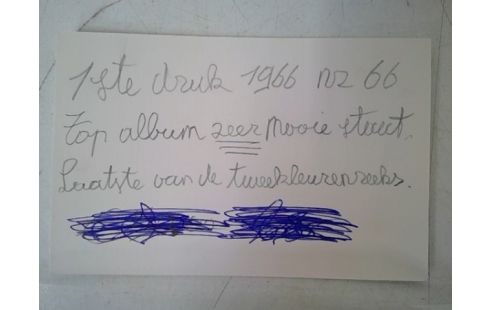 1ste druk 1966 nr 66
Top album zeer mooie staat.
Laatste van de tweekleurenreeks.